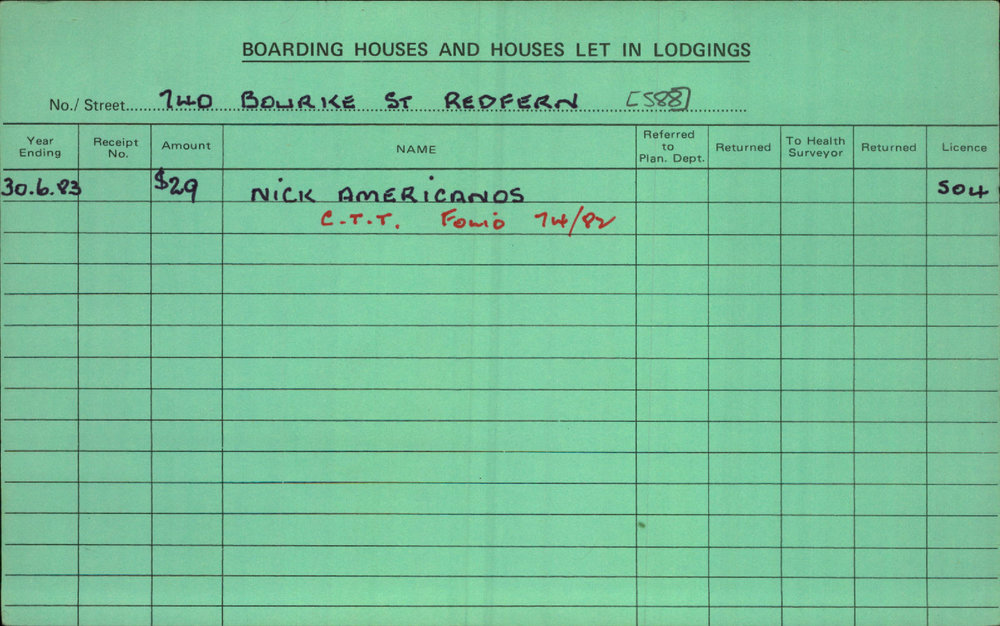 BOARDING HOUSES AND HOUSES LET IN LODGINGS
No./ Street 740 BOURKE ST REDFERN [588]
Year Ending Receipt No. Amount NAME Referred to Plan. Dept. Returned To Health Surveyor Returned Licence
30.6.83 $29 NICK AMERICANOS 504
C.T.T. FOLIO 74/82